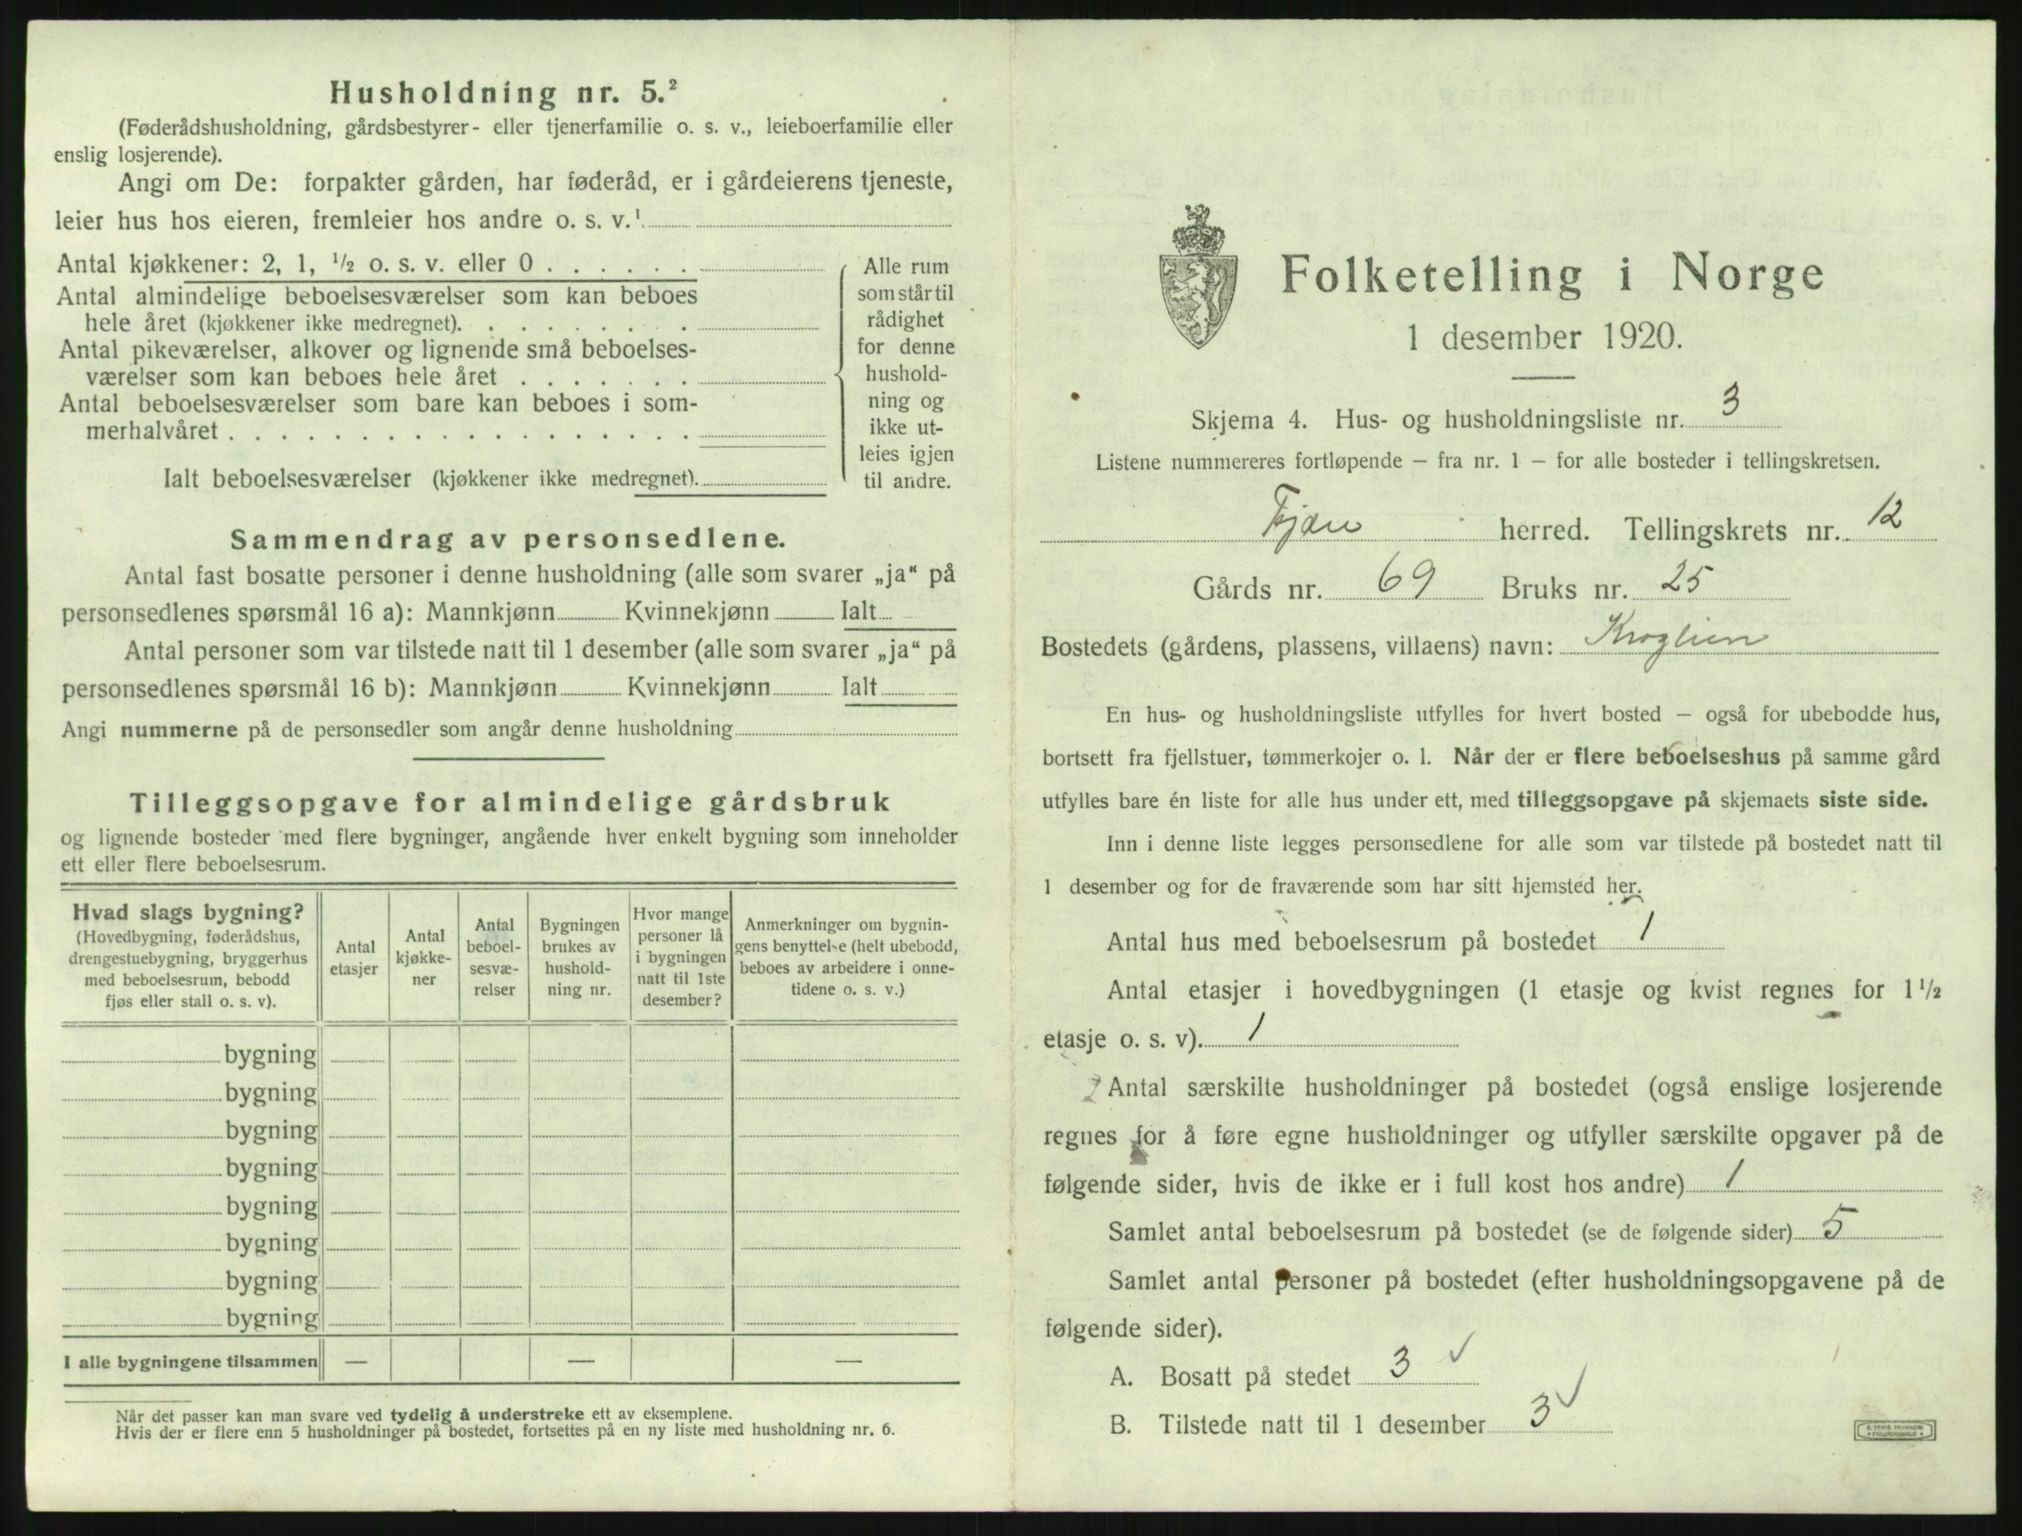 Husholdning nr. 5.²
(Føderådshusholdning, gårdsbestyrer- eller tjenerfamilie o. s. v., leieboerfamilie eller
enslig losjerende).
Angi om De: forpakter gården, har føderåd, er i gårdeierens tjeneste,
leier hus hos eieren, fremleier hos andre o. s. v.¹
Antal kjøkkener: 2, 1, ½ o. s. v. eller 0 . . . . . .
Antal almindelige beboelsesværelser som kan beboes
hele året (kjøkkener ikke medregnet). . . . . . . . .
Antal pikeværelser, alkover og lignende små beboelses-
værelser som kan beboes hele året . . . . . . .
Antal beboelsesværelser som bare kan beboes i som-
merhalvåret . . . . . . . . . . . . . . . . . .
Ialt beboelsesværelser (kjøkkener ikke medregnet).
Alle rum
som står til
rådighet
for denne
hushold-
ning og
ikke ut-
leies igjen
til andre.
Sammendrag av personsedlene.
Antal fast bosatte personer i denne husholdning (alle som svarer „ja“ på
personsedlenes spørsmål 16 a): Mannkjønn Kvinnekjønn Ialt
Antal personer som var tilstede natt til 1 desember (alle som svarer „ja“ på
personsedlenes spørsmål 16 b): Mannkjønn Kvinnekjønn Ialt
Angi nummerne på de personsedler som angår denne husholdning
Tilleggsopgave for almindelige gårdsbruk
og lignende bosteder med flere bygninger, angående hver enkelt bygning som inneholder
ett eller flere beboelsesrum.
Hvad slags bygning?
(Hovedbygning, føderådshus,
drengestuebygning, bryggerhus
med beboelsesrum, bebodd
fjøs eller stall o. s. v).
Antal
etasjer
Antal
kjøkke-
ner
Antal
beboel-
sesvæ-
relser
Bygningen
brukes av
hushold-
ning nr.
Hvor mange
personer lå
i bygningen
natt til 1ste
desember?
Anmerkninger om bygnin-
gens benyttelse (helt ubebodd,
beboes av arbeidere i onne-
tidene o. s. v.)
bygning
bygning
bygning
bygning
bygning
bygning
bygning
bygning
I alle bygningene tilsammen — — —
Når det passer kan man svare ved tydelig å understreke ett av eksemplene.
Hvis der er flere enn 5 husholdninger på bostedet, fortsettes på en ny liste med husholdning nr. 6.
Folketelling i Norge
1 desember 1920.
Skjema 4. Hus- og husholdningsliste nr. 3
Listene nummereres fortløpende – fra nr. 1 – for alle bosteder i tellingskretsen.
Fjære herred. Tellingskrets nr. 12
Gårds nr. 69 Bruks nr. 25
Bostedets (gårdens, plassens, villaens) navn: Kroglien
En hus- og husholdningsliste utfylles for hvert bosted – også for ubebodde hus,
bortsett fra fjellstuer, tømmerkojer o. l. Når der er flere beboelseshus på samme gård
utfylles bare én liste for alle hus under ett, med tilleggsopgave på skjemaets siste side.
Inn i denne liste legges personsedlene for alle som var tilstede på bostedet natt til
1 desember og for de fraværende som har sitt hjemsted her.
Antal hus med beboelsesrum på bostedet 1
Antal etasjer i hovedbygningen (1 etasje og kvist regnes for 1½
etasje o. s. v). 1
2 Antal særskilte husholdninger på bostedet (også enslige losjerende
regnes for å føre egne husholdninger og utfyller særskilte opgaver på de
følgende sider, hvis de ikke er i full kost hos andre) 1
Samlet antal beboelsesrum på bostedet (se de følgende sider) 5
Samlet antal personer på bostedet (efter husholdningsopgavene på de
følgende sider).
A. Bosatt på stedet 3 ✓
B. Tilstede natt til 1 desember 3 ✓